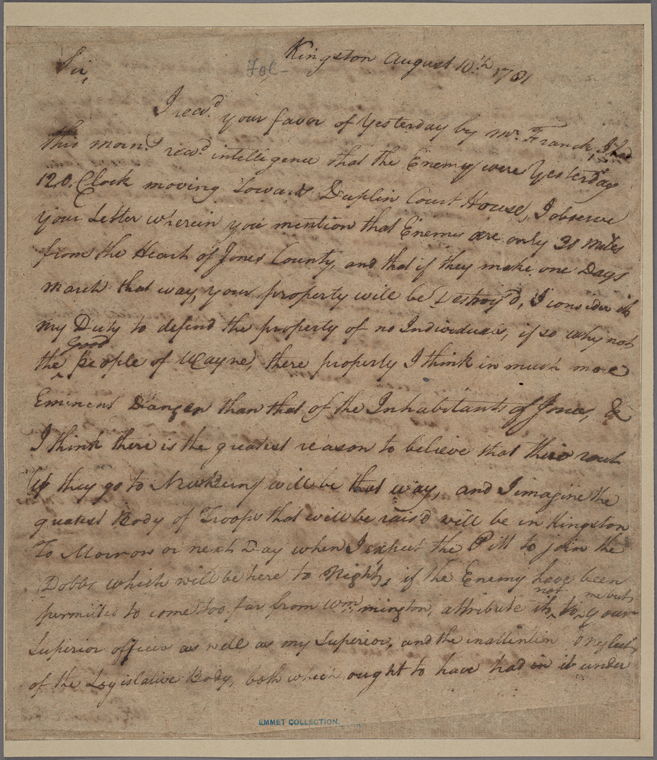 Kingston August 10th 1781
Sir,
I recd your favor of Yesterday by mr. Franck, I had
this mornd recd intelligence that the Enemy were Yesterday
12 O. Clock moving Towards Duplin Court House, I observe
your Letter wherein you mention that Enemy are only 30 miles
from the Heart of Jones County, and that if they make one Days
march that way, your property will be Destroy'd, I consider it
my Duty to defend the property of no Individuals, if so why not
the Good people of Wayne, there property I think in much more
Eminent Danger than that of the Inhabitants of Jones, &
I think there is the greatest reason to believe that their rout
if they go to NewBern, will be that way, and I imagine the
greatest Body of Troops that will be rais'd will be in Kingston
To Morrow or next Day when I expect the Pitt to join the
Dobbs which will be here to Night, if the Enemy have been
permitted to come too far from Wm.mington, attribute it not to me but your
Superior officer as well as my Superior, and the inattention & neglect
of the Legislative Body, both which ought to have had in it under
EMMET COLLECTION.